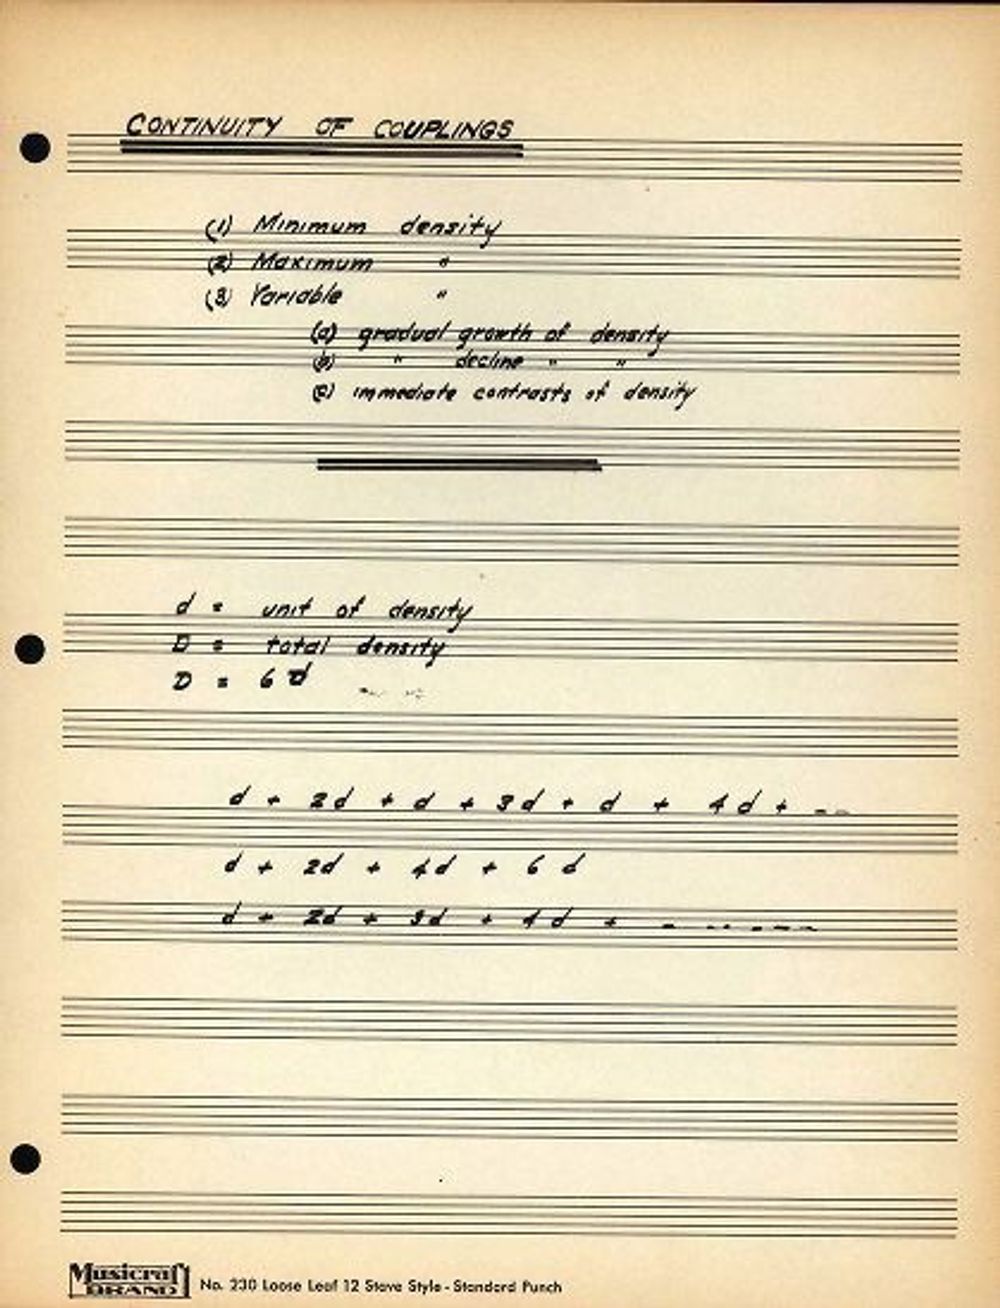 CONTINUITY OF COUPLINGS
(1) Minimum density
(2) Maximum "
(3) Variable "
(a) gradual growth of density
(b) " decline " "
(c) immediate contrasts of density
d = unit of density
D = total density
D = 6d
d + 2d + d + 3d + d + 4d + --
d + 2d + 4d + 6d
d + 2d + 3d + 4d + - -- - - --
Musicraft BRAND No. 230 Loose Leaf 12 Stave Style - Standard Punch